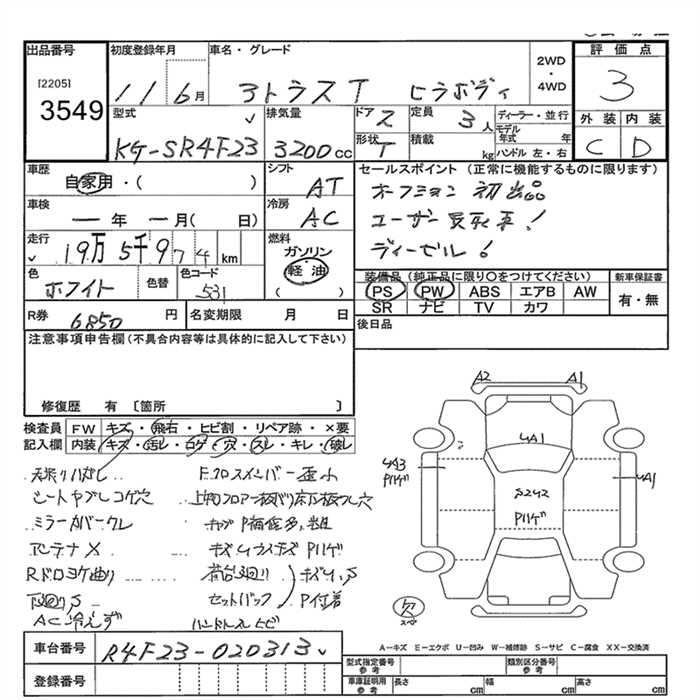 出品番号
[2205]
3549
初度登録年月
11 6月
車名・グレード
3トラス T ヒラボディ
2WD
・
4WD
評価点
3
外装 内装
C D
型式
KG-SR4F23
排気量
3200cc
ドア 2
定員 3人
形状 T
積載 kg
ディーラー・並行
モデル年式 年
ハンドル 左・右
車歴
自家用・( )
シフト
AT
車検
ー年 ー月( 日)
冷房
AC
走行
19万5千974km
燃料
ガソリン
軽油
( )
色
ホワイト
色替
色コード
531
R券 6850円
名変期限 月 日
セールスポイント (正常に機能するものに限ります)
オークション 初出品
ユーザー買取車!
ディーゼル!
装備品 (純正品に限り〇をつけてください)
PS PW ABS エアB AW
SR ナビ TV カワ
新車保証書
有・無
後日品
注意事項申告欄(不具合内容等は具体的に記入して下さい)
修復歴 有 〔箇所 〕
検査員記入欄
FW キズ・飛石・ヒビ割・リペア跡・×要
内装 キズ・汚レ・コゲ・穴・スレ・キレ・破レ
天張りハガレ
シートヤブレコゲ穴
ミラーカバークレ
アンテナX
Rドロヨケ曲り
下廻りS
AC冷えず
F.クロスメンバー歪小
キズUライテスPハゲ
荷台廻り
セットバック
キズU,S
P付着
ハンドルスレヒビ
A2 A1
4A1
4A3
Pハゲ
4A1
S242
Pハゲ
欠
スペ
A-キズ E-エクボ U-凹み W-補修跡 S-サビ C-腐食 XX-交換済
車台番号
R4F23-020313
登録番号
型式指定番号
参考
類別区分番号
参考
車庫証明用
参考
長さ cm
幅 cm
高さ cm